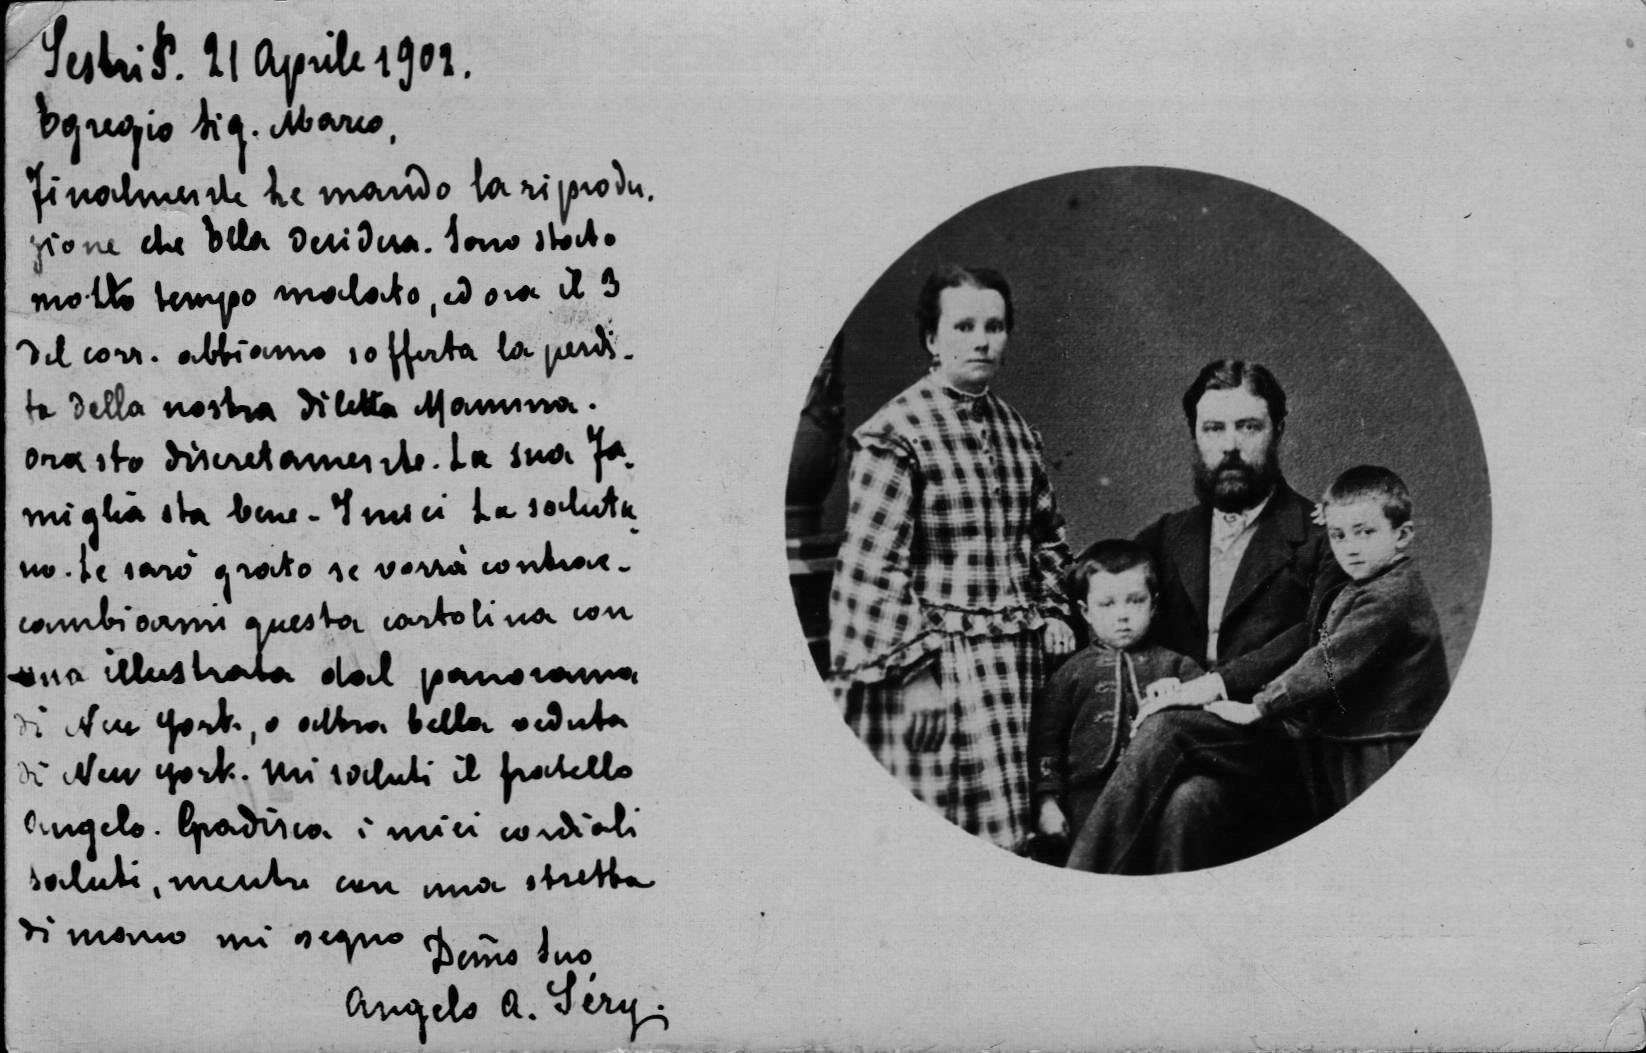 Sestri P. 21 Aprile 1902.
Egregio Sig. Marco,
Finalmente Le mando la riprodu.
zione che Ella desidera. Sono stato
molto tempo malato, ed ora il 3
del corr. abbiamo sofferta la perdi-
ta della nostra diletta Mamma.
Ora sto discretamente. La sua Fa.
miglia sta bene - I miei La saluta
no. Le sarò grato se vorrà contrac-
cambiarmi questa cartolina con
una illustrata dal panorama
di New York, o altra bella veduta
di New York. Mi saluti il fratello
Angelo. Gradisca i miei cordiali
saluti, mentre con una stretta
di mano mi segno
Demo Suo
Angelo A. Séry.